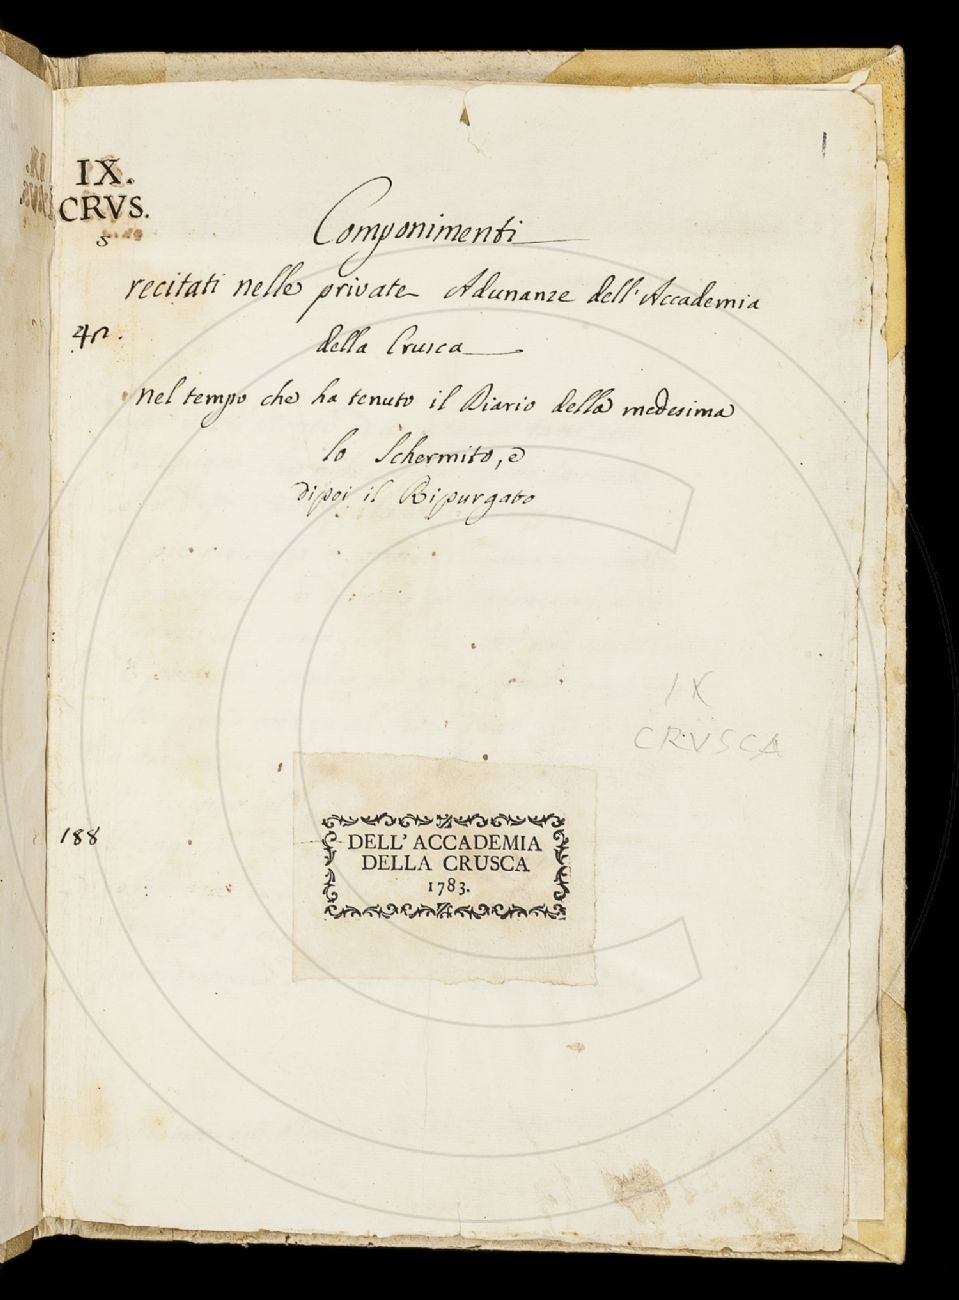 1
IX.
CRVS.
5
Componimenti
recitati nelle private Adunanze dell'Accademia
della Crusca
nel tempo che ha tenuto il Diario della medesima
lo Schermito, e
dipoi il Ripurgato
IX
CRVSCA
188
DELL' ACCADEMIA
DELLA CRUSCA
1783.